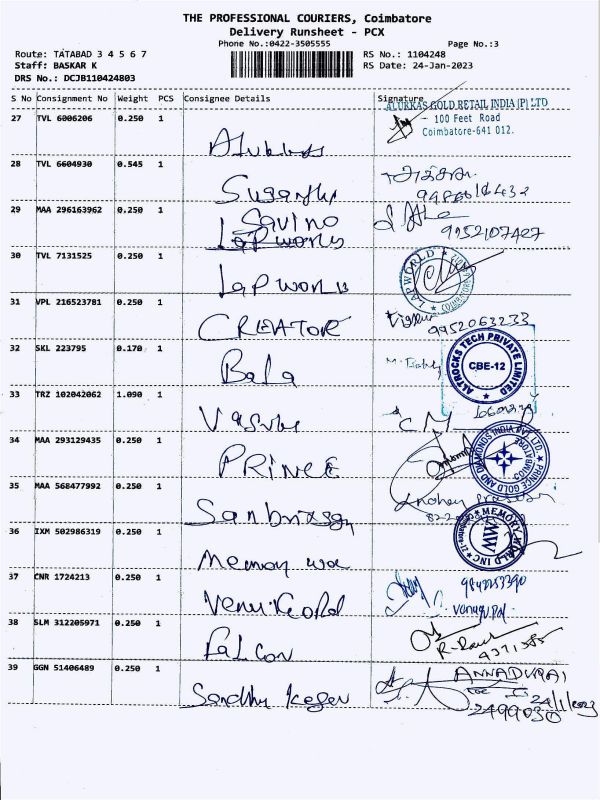 THE PROFESSIONAL COURIERS, Coimbatore
Delivery Runsheet - PCX
Phone No.:0422-3505555
Page No.:3
Route: TATABAD 3 4 5 6 7
RS No.: 1104248
Staff: BASKAR K
RS Date: 24-Jan-2023
DRS No.: DCJB110424803
S No Consignment No Weight PCS Consignee Details Signature
ALUKKAS GOLD RETAIL INDIA (P) LTD
27 TVL 6006206 0.250 1
100 Feet Road
Coimbatore-641 012.
Alukkas
28 TVL 6604930 0.545 1
Suganthi
29 MAA 296163962 0.250 1
Savino
Lap works
9952107427
30 TVL 7131525 0.250 1
LAPWORLD
COIMBATORE
Lap world
31 VPL 216523781 0.250 1
CREATOR
9952063233
32 SKL 223795 0.170 1
ALTROCKS TECH PRIVATE LIMITED
CBE-12
Bala
33 TRZ 102042062 1.090 1
34 MAA 293129435 0.250 1
PRINCE GOLD AND DIAMONDS INDIA PVT. LTD.
COIMBATORE
PRINCE
35 MAA 568477992 0.250 1
36 IXM 502986319 0.250 1
MEMORY WORLD INC
MW
Memory
37 CNR 1724213 0.250 1
Venu Gopal
38 SLM 312205971 0.250 1
Falcon
39 GGN 51406489 0.250 1
ANNADURAI
Sandhy
24/1/2023
2499030